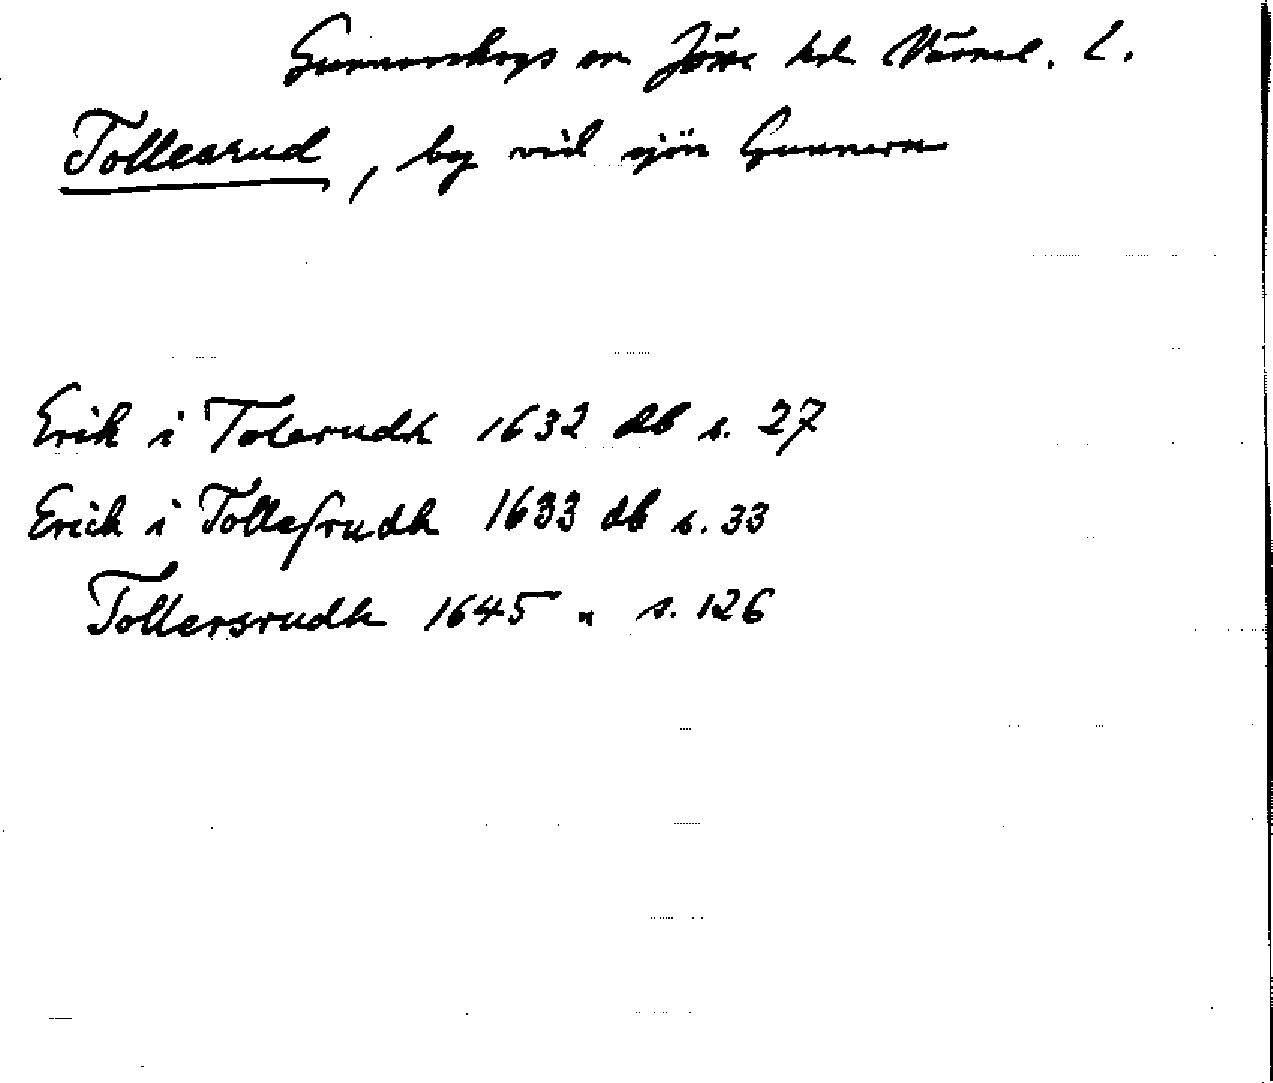 Gunnarskogs sn Jösse hd Värml. L.
Tollesrud, by vid sjön Gunnern
Erik i Tolerudh 1632 db s. 27
Erich i Tollesrudh 1633 db s. 33
Tollersrudh 1645 " s. 126